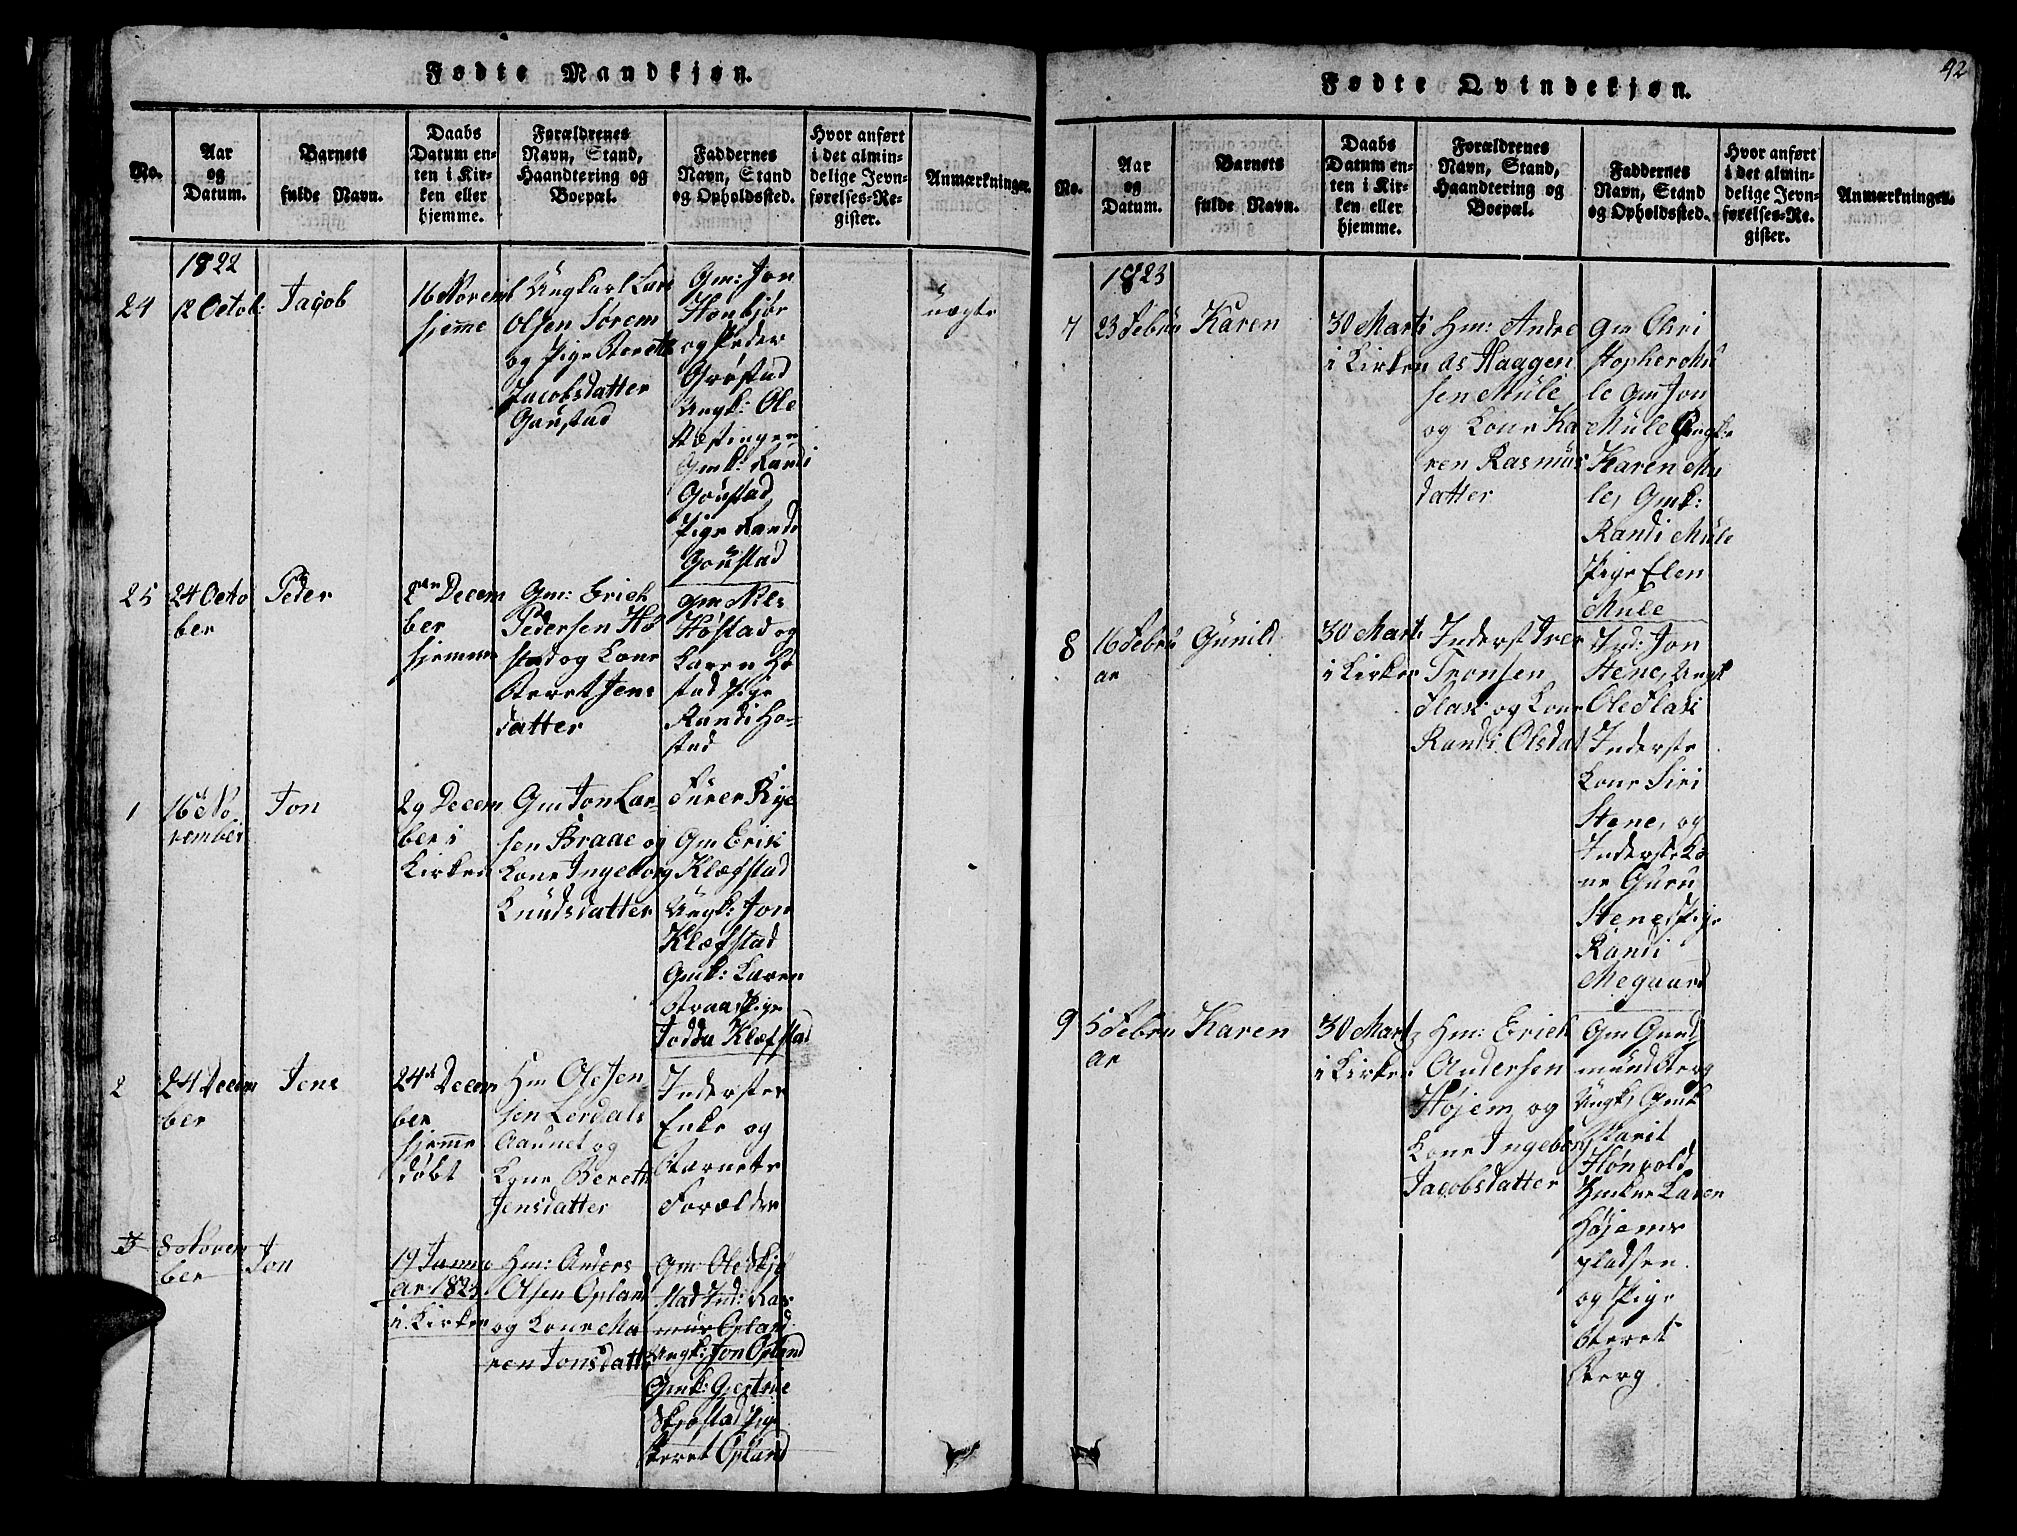 Fødte Mandkjøn.
No.
Aar
og
Datum.
Barnets
fulde Navn.
Daabs
Datum en-
ten i Kir-
ken eller
hjemme.
Forældrenes
Navn, Stand,
Haandtering og
Boepæl.
Faddernes
Navn, Stand
og Opholdssted.
Hvor anført
i det almin-
delige Jevn-
førelses-Re-
gister.
Anmærkninger.
1822
24
12 Octob:
Jacob
16 Novemb
hjemme
Ungkarl Lars
Olsen Sorem
og Pige Bereth
Jacobsdatter
Goustad
Gm: Jon
og Peder
Grøstad
Ungk: Ole
Gmk: Randi
Goustad
Pige Randi
Goustad
uægte
25
24 Octo
ber
Peder
Decem
ber
hjemme
Gm: Erich
Pedersen Hø
stad og Kone
Beret Jens
datter
Gm Nils
Høstad og
Karen Hø
stad Pige
Randi Hø-
stad
1
16 No
vember
Jon
29 Decem
ber i
Kirken
Gm Jon Lar-
sen Braae og
Kone Ingeborg
Knudsdatter
Furer Rye
Gm Erik
Klæfstad
Ungk: Jon
Klæfstad
Gmk: Karen
Braa Pige
Klæfstad
2
24 Decem
ber
Jens
24 Decem
ber
hjemme
døbt
Hm Ole Jen-
sen Lerdals
Aaunet og
Kone Bereth
Jensdatter
Inderster
Enke og
Barnets
Forældre
3
8 Novem
ber
Jon
19 Janu
ar 1823
i Kirken
Hm: Anders
Olsen Opland
og Kone Ma
ren Jonsdatt
Gm Ole Skjø
stad Ind: Ras
mus Opland
Ungk: Jon Opland
Gmk: Gjertrue
Skjøstad Pige
Beret Opland
Fødte Qvindekjøn.
42
No.
Aar
og
Datum.
Barnets
fulde Navn.
Daabs
Datum en-
ten i Kir-
ken eller
hjemme.
Forældrenes
Navn, Stand,
Haandtering og
Boepæl.
Faddernes
Navn, Stand
og Opholdssted.
Hvor anført
i det almin-
delige Jevn-
førelses-Re-
gister.
Anmærkninger.
1823
7
23 Febru
Karen
30 Marti
i Kirken
Hm: Andre
as Haagen
sen Mule
og Kone Ka
ren Rasmus
datter
Gm Chri
stopher Mu
le Gm Jon
Mule Ungk:
Karen Mu
le, Gmk:
Randi Mule
Pige Elen
Mule
8
16 Febru
ar
Gunild
30 Marti
i Kirken
Inderst Iver
Tronsen
Flak og Kone
Randi Olsdat
Ind: Jon
Stene, Ungk
Ole Flak
Inderste
Kone Siri
Stene, og
Inderste Ko
ne Guru
Stene, Pige
Randi
Megaard
9
5 Febru
ar
Karen
30 Marti
i Kirken
Hm: Erich
Andersen
Højem og
Kone Ingebor
Jacobsdatter
Gm Gud
mund Berg
Ungk, Gmk
Marit
Karen
Højems
pladsen
og Pige
Beret
Berg